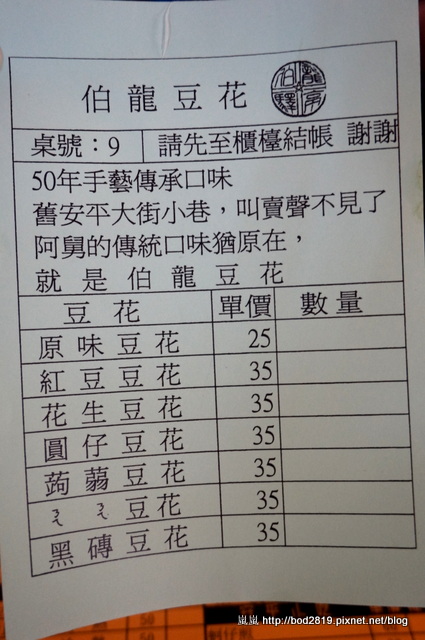 伯龍豆花
桌號：9 請先至櫃檯結帳 謝謝
50年手藝傳承口味
舊安平大街小巷，叫賣聲不見了
阿舅的傳統口味猶原在，
就是伯龍豆花
豆花 單價 數量
原味豆花 25
紅豆豆花 35
花生豆花 35
圓仔豆花 35
蒟蒻豆花 35
ㄋㄋ豆花 35
黑磚豆花 35
嵐嵐 http://bod2819.pixnet.net/blog